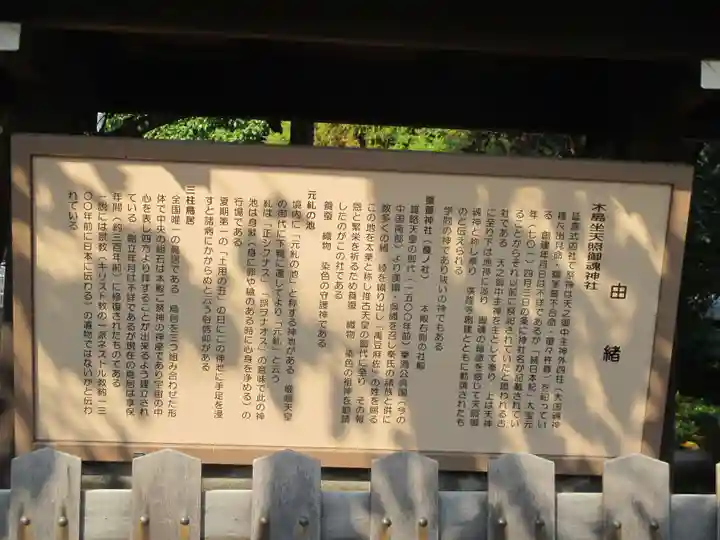 由緒
木嶋坐天照御魂神社
延喜式内社で祭神は天之御中主神外四柱(大国魂神
穂々出見命 鵜茅葺不合命 瓊々杵尊)を祀ってい
る 創建年月日は不詳であるが「続日本紀」大宝元
年(七〇一)四月三日の条に神社名が記載されてい
ることからそれ以前に祭祀されていたと思われる古
社である 天之御中主神を主として奉り 上は天神
に至り下は地神に渉り 御魂の総徳を感じて天照御
魂神と称し奉り 広隆寺創建とともに勧請されたも
のと伝えられる
学問の神であり祓いの神でもある
蚕養神社(蚕ノ社) 本殿右側の社殿
雄略天皇の御代(一五〇〇年前)秦酒公呉国(今の
中国南部)より漢織・呉織を召し秦氏の諸族と供に
数多くの絹 綾を織り出し「禹豆麻佐」の姓を賜る
この地を太秦と称し推古天皇の御代に至り その報
恩と繁栄を祈るため養蚕 織物 染色の祖神を勧請
したのがこの社である
養蚕 織物 染色の守護神である
元糺の池
境内に「元糺の池」と称する神池がある 嵯峨天皇
の御代に下鴨に遷してより「元糺」と云う
糺は「正シクナス」「誤ヲナオス」の意味で此の神
池は身滌(身に罪や穢のある時に心身を浄める)の
行場である
夏期第一の「土用の丑」の日にこの神池に手足を浸
すと諸病にかからぬと云う俗信仰がある
三柱鳥居
全国唯一の鳥居である 鳥居を三つ組み合わせた形
体で中央の組石は本殿ご祭神の神座であり宇宙の中
心を表し四方より拝することが出来るよう建立され
ている 創立年月は不詳であるが現在の鳥居は享保
年間(約三百年前)に修復されたものである
一説には景教(キリスト教の一派ネストル教約一三
〇〇年前に日本に伝わる)の遺物ではないかと伝わ
れている